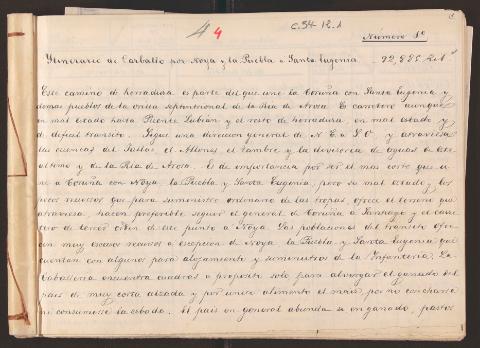 4 4
C.34-12.1
Número 8º
Itinerario de Carballo por Noya y la Puebla a Santa Eugenia. 92,885
Este camino de herradura es parte del que une la Coruña con Santa Eugenia y
demas pueblos de la orilla septentrional de la Ria de Arosa. Es carretero aunque
en mal estado hasta Puente Lubián y el resto de herradura, en mal estado y
de dificil transito. Sigue una direccion general de N E a S O y atraviesa
las cuencas del Jallas el Allones el Tambre y la divisoria de aguas de este
ultimo y de la Ria de Arosa. Es de importancia por ser el mas corto que u
ne a Coruña con Noya, la Puebla y Santa Eugenia, pero su mal estado y los
pocos recursos que para suministro ordinario de las tropas, ofrece el terreno que
atraviesa hacen preferible seguir el general de Coruña a Santiago y el carre
tero de tercer orden de este punto a Noya. Las poblaciones del transito ofre
cen muy escasos recursos a escepcion de Noya la Puebla y Santa Eugenia que
cuentan con algunos para alojamiento y suministros de la Infanteria. La
Caballeria encuentra cuadras a proposito solo para alvergar el ganado del
pais de muy corta alzada y por unico alimento el maiz, por no cosecharse
ni consumirse la cebada. El pais en general abunda en ganado, pastos